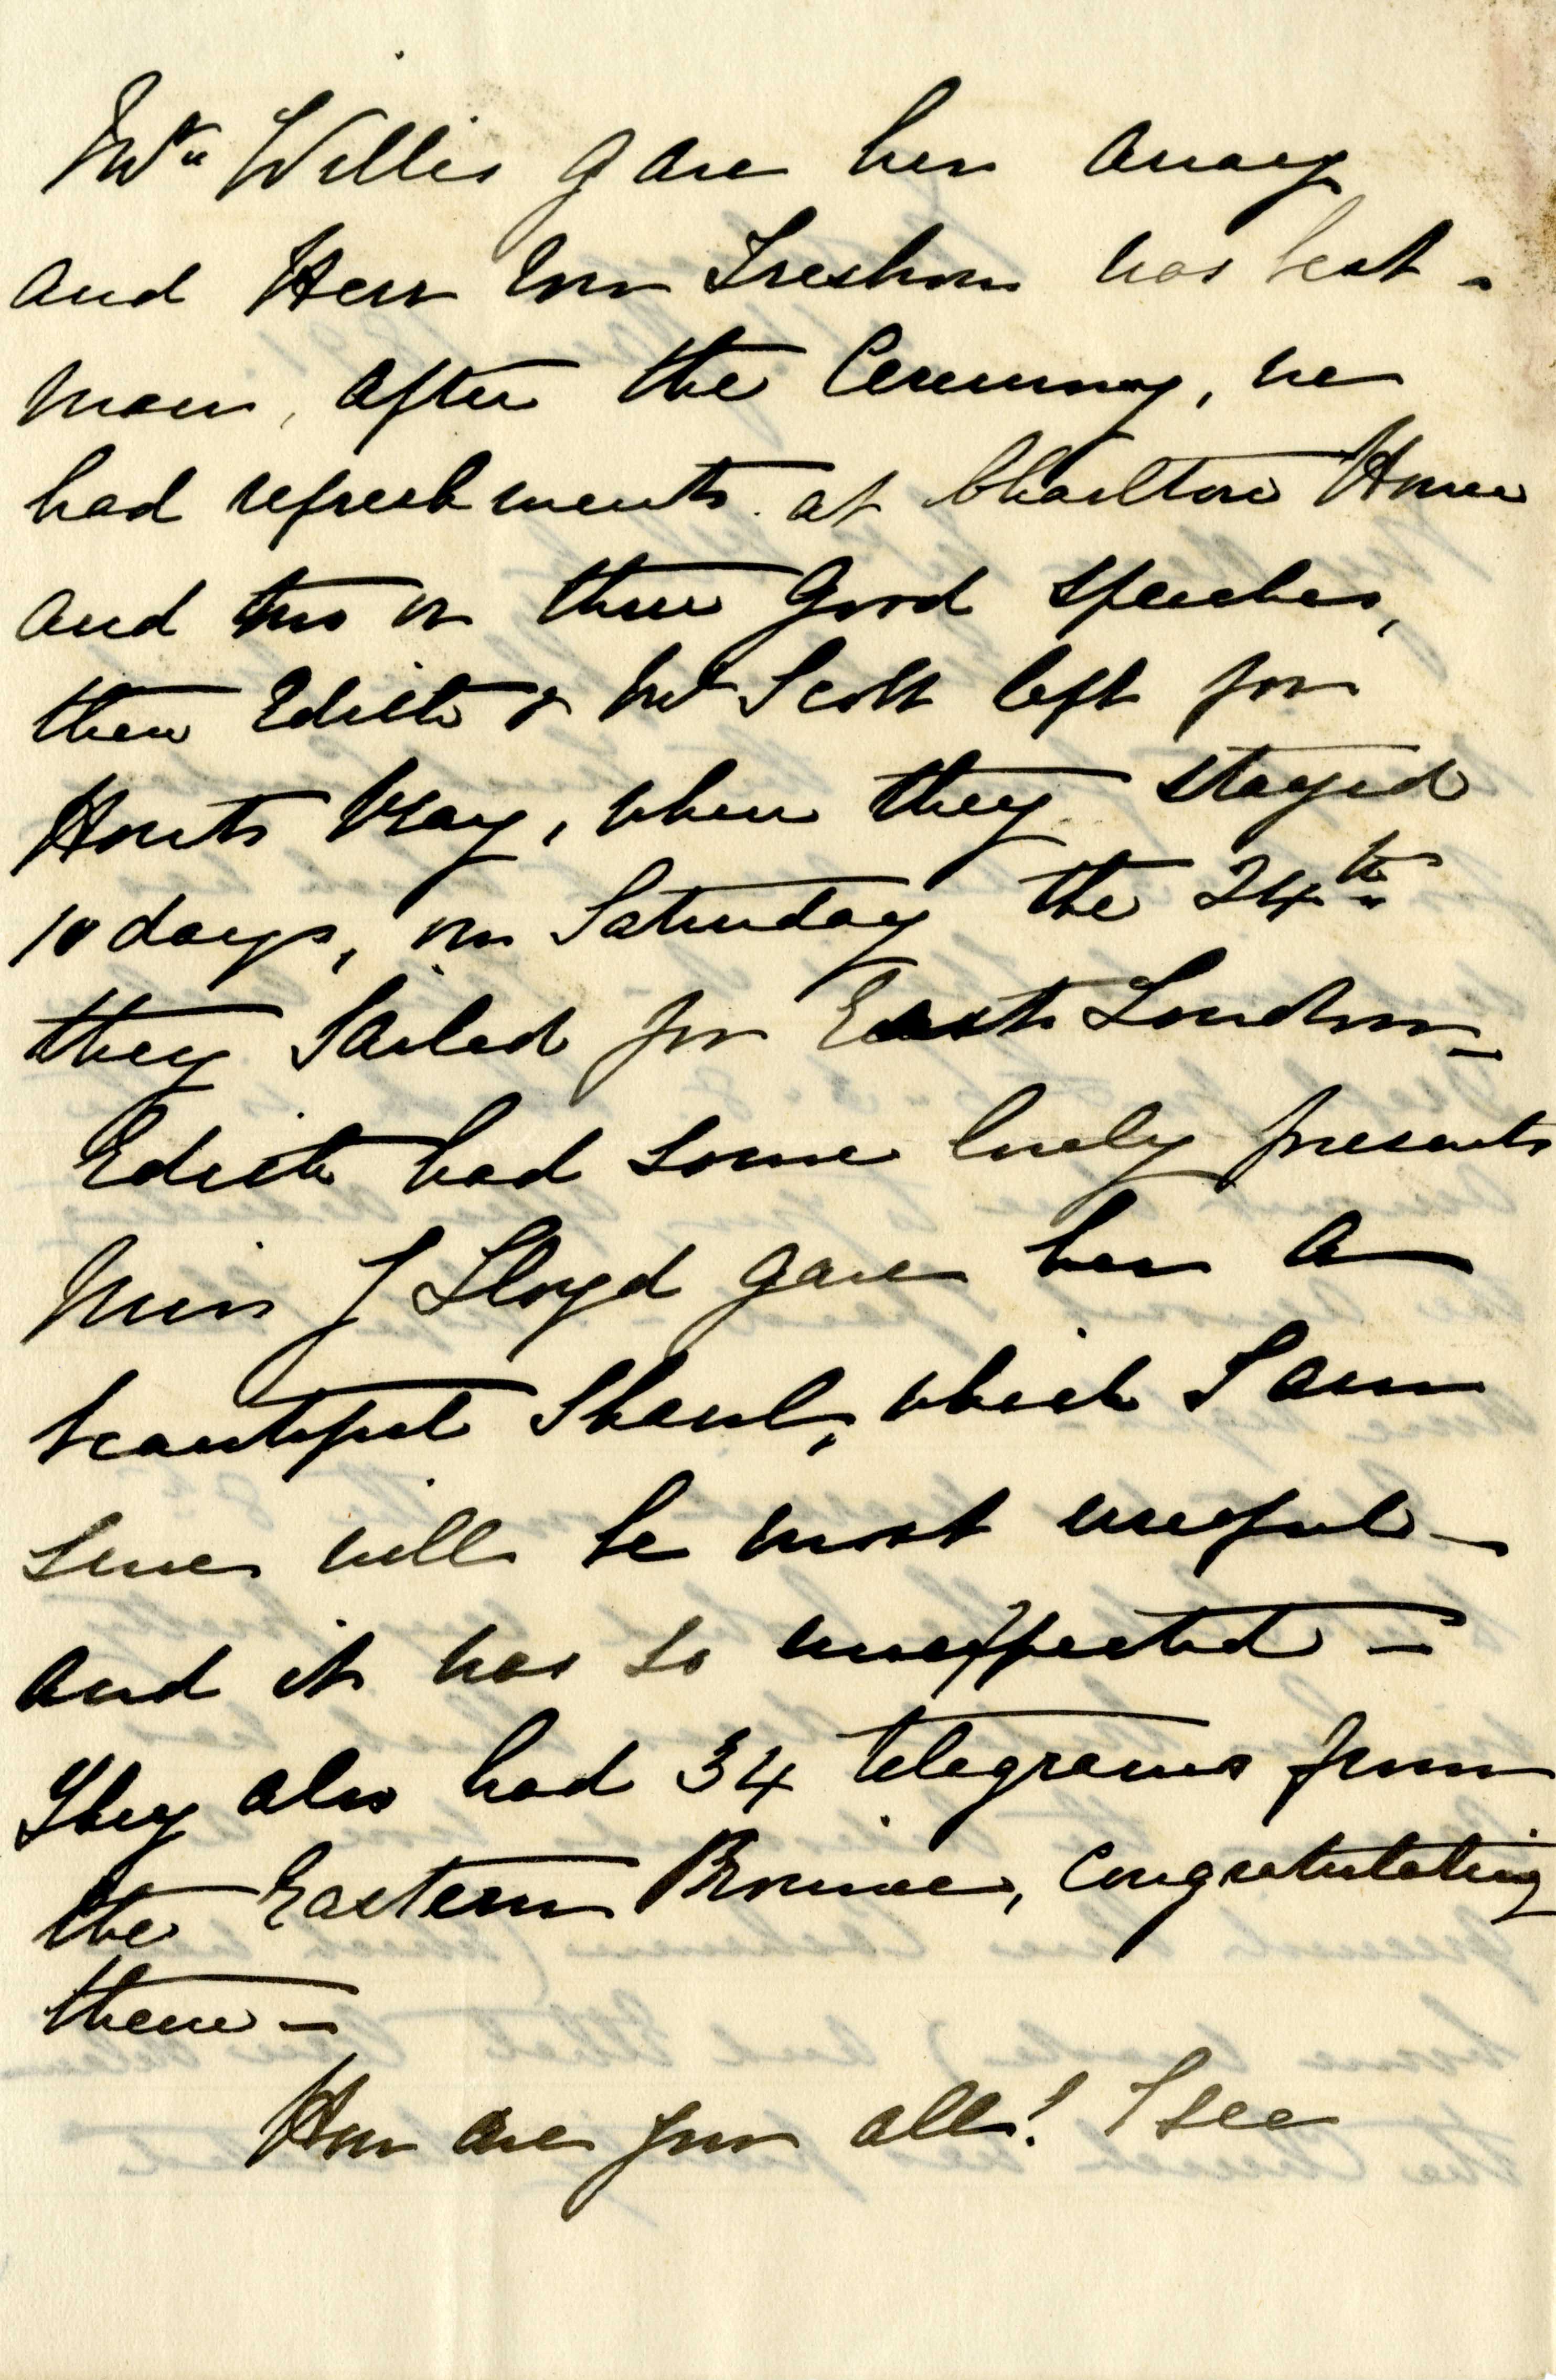 Mr. Willis gave her away
and Herr von Treskow was best -
man, after the Ceremony, we
had refreshments at Charlton House
and two or three good speeches,
then Edith & Mr Scott left for
Houts Bay, where they stayed
10 days, on Saturday the 24th
they sailed for East London -
Edith had some lovely presents
Miss J Lloyd gave her a
beautiful Shawl, which I am
sure will be most useful -
and it was so unexpected -
They also had 34 telegrams from
the Eastern Province, congratulating
them -
How are you all? I see